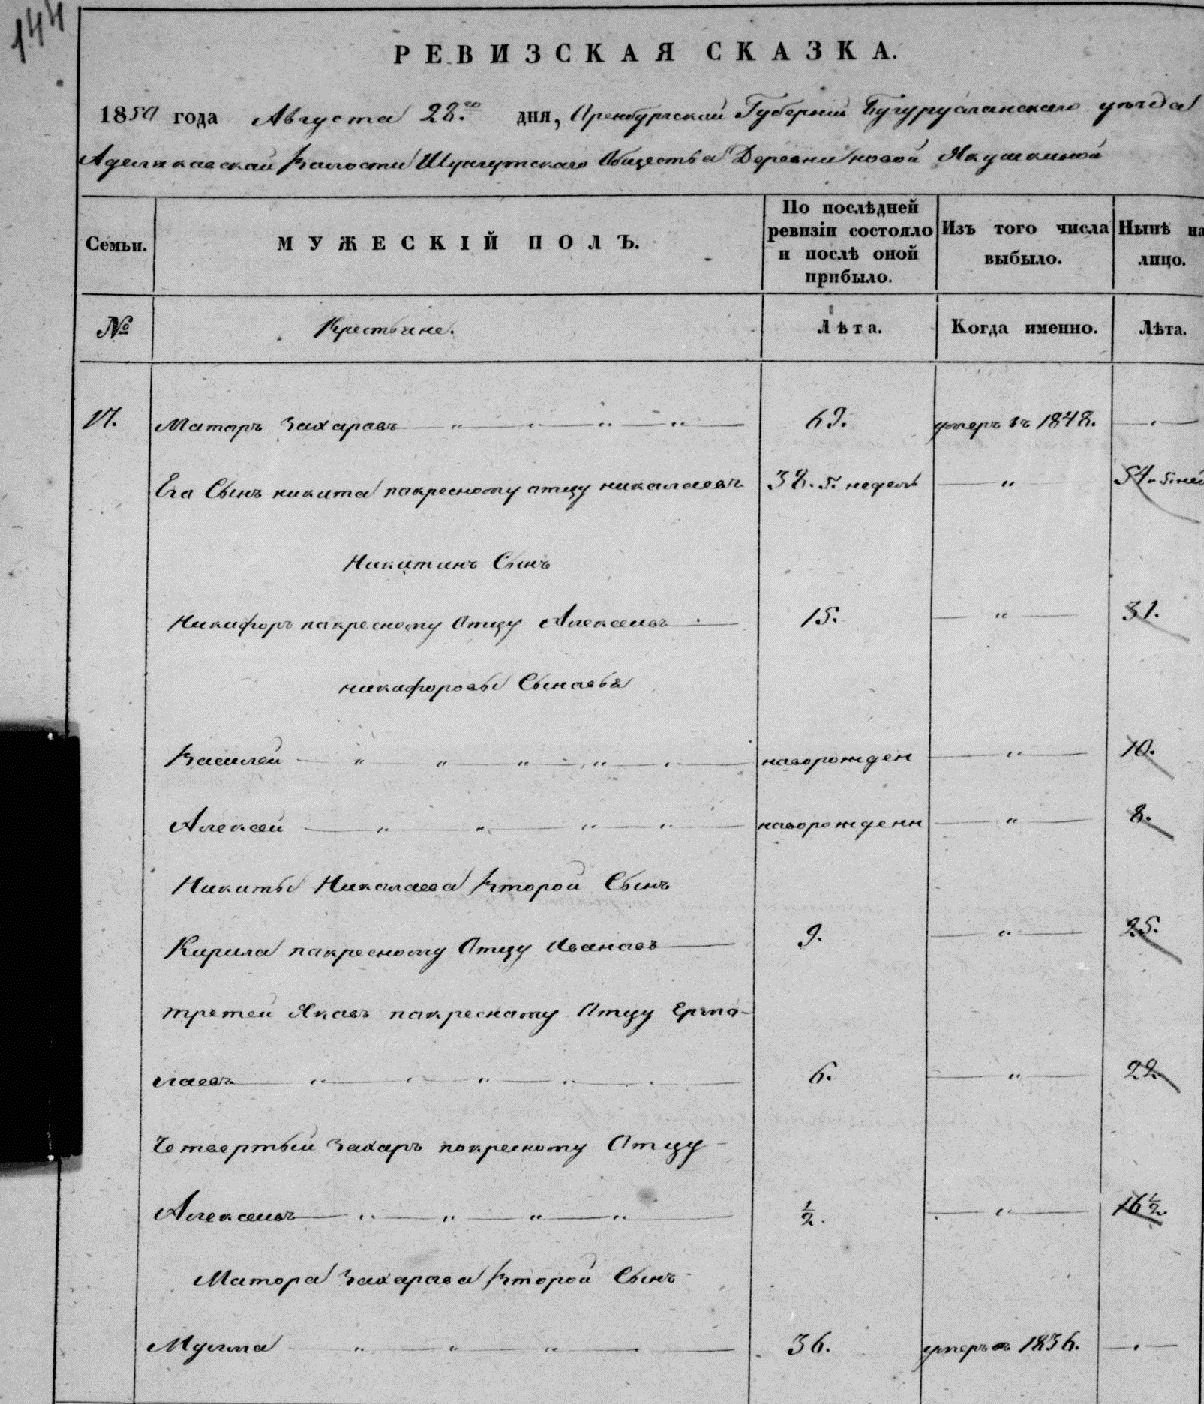 144
РЕВИЗСКАЯ СКАЗКА.
1850 года Августа 28.го дня, Оренбургской Губернии Бугурусланскаго уезда
Волости Шунгутскаго Общества Деревни новой Якушкиной
Семьи. МУЖЕСКІЙ ПОЛЪ. По послѣдней ревизіи состояло и послѣ оной прибыло. Изъ того числа выбыло. Нынѣ на лицо.
№ Крестьяне. Лѣта. Когда именно. Лѣта.
Маторъ Захаравъ 69. умеръ въ 1848.
Его Сынъ никита пакресному отцу николаевъ 38. 5. недель 54. 5 не
Никитинъ Сынъ
Никифоръ пакресному Отцу Алексеевъ 15. 31.
никифоровы Сыновья
Василей наворожден 10.
Алексей наворожденн 8.
Никиты Николаева второй Сынъ
Кирила пакресному Отцу Иванаевъ 9. 25.
третей Якавъ пакресному Отцу Ермо-
лаевъ 6. 22.
Четвертый Захаръ покресному Отцу
Алексеевъ ½. 16½.
Матора Захарава второй Сынъ
Мулма 36. умеръ въ 1836.